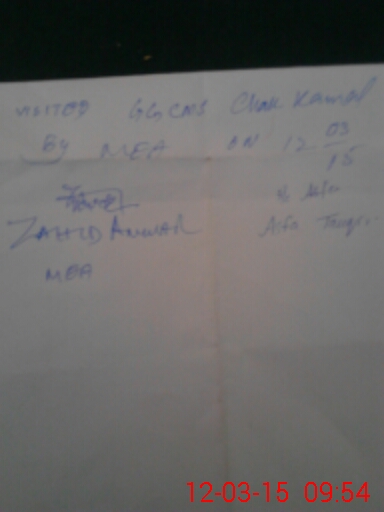 VISITED GGCMS Chak Kamal
By MEA ON 12 03
15
ZAHID ANWAR
MEA
12-03-15 09:54